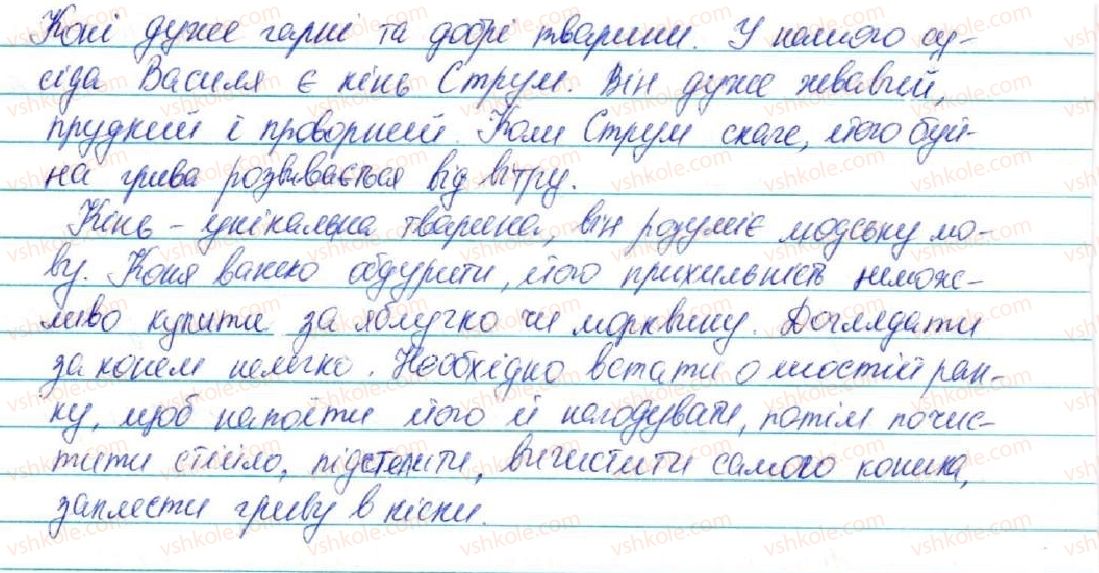 Коні дуже гарні та добрі тварини. У нашого су-
сіда Василя є кінь Струм. Він дуже жвавий,
прудкий і проворний. Коли Струм скаче, його буй-
на грива розвивається від вітру.
Кінь – унікальна тварина, він розуміє людську мо-
ву. Коня важко обдурити, його прихильність немож-
ливо купити за яблучко чи морквину. Доглядати
за конем нелегко. Необхідно встати о шостій ран-
ку, щоб напоїти його й нагодувати, потім почис-
тити стійло, підстелити, вичистити самого коника,
заплести гриву в кіски.
vshkole.com